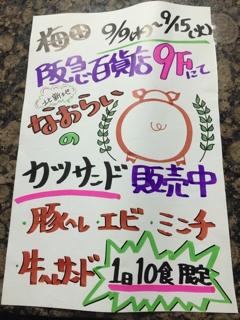 梅田 9/9(水)〜9/15(火)
阪急百貨店9Fにて
北新地
なおらい
の
カツサンド 販売中
・豚ヘレ・エビ・ミンチ
・牛ヘレサンド 1日10食限定